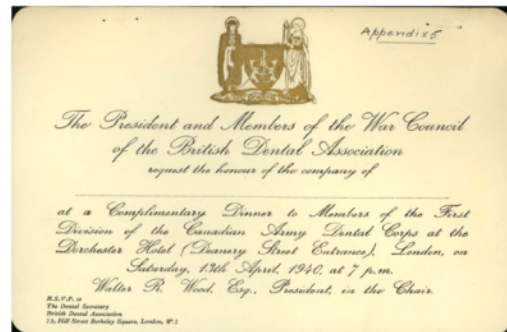 Appendix 5
The President and Members of the War Council
of the British Dental Association
request the honour of the company of
at a Complimentary Dinner to Members of the First
Division of the Canadian Army Dental Corps at the
Dorchester Hotel (Deanery Street Entrance), London, on
Saturday, 13th April, 1940, at 7 p.m.
Walter R. Wood, Esq., President, in the Chair.
R.S.V.P. to
The Dental Secretary
British Dental Association
13, Hill Street Berkeley Square, London, W.1